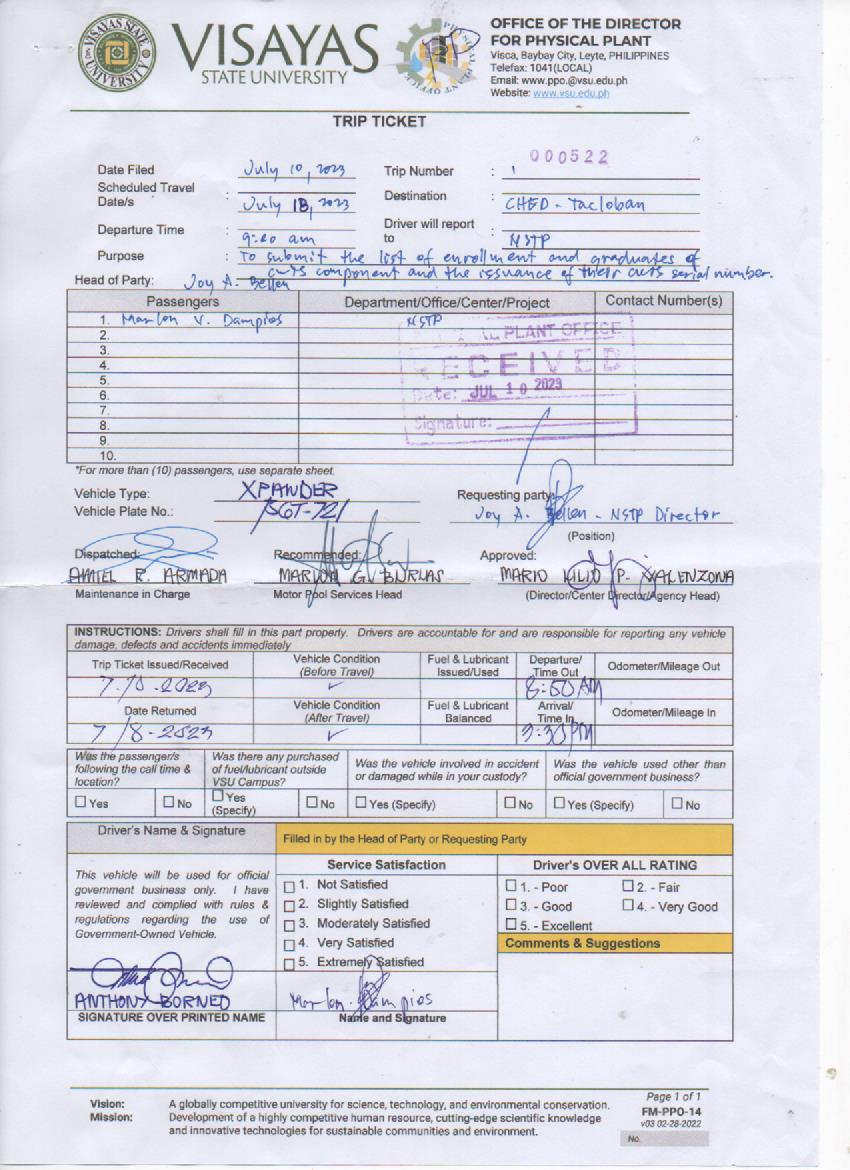 VISAYAS STATE UNIVERSITY
VISAYAS
STATE UNIVERSITY
OFFICE OF THE DIRECTOR
FOR PHYSICAL PLANT
Visca, Baybay City, Leyte, PHILIPPINES
Telefax: 1041(LOCAL)
Email: www.ppo.@vsu.edu.ph
Website: www.vsu.edu.ph
TRIP TICKET
000522
Date Filed : July 10, 2023 Trip Number : 1
Scheduled Travel Date/s : July 18, 2023 Destination : CHED - Tacloban
Departure Time : 9:20 am Driver will report to : NSTP
Purpose : To submit the list of enrollment and graduates of
CWTS component and the issuance of their CWTS serial number.
Head of Party: Joy A. Bellen
Passengers Department/Office/Center/Project Contact Number(s)
1. Marlon V. Dampios NSTP
2.
3.
4.
5.
6.
7.
8.
9.
10.
PLANT OFFICE
RECEIVED
Date: JUL 10 2023
Signature:
*For more than (10) passengers, use separate sheet.
Vehicle Type: XPANDER Requesting party:
Vehicle Plate No.: Joy A. Bellen - NSTP Director
(Position)
Dispatched: Recommended: Approved:
AMIEL R. ARMADA MARLON G. BURLAS MARIO LILIO P. VALENZONA
Maintenance in Charge Motor Pool Services Head (Director/Center Director/Agency Head)
INSTRUCTIONS: Drivers shall fill in this part properly. Drivers are accountable for and are responsible for reporting any vehicle
damage, defects and accidents immediately
Trip Ticket Issued/Received Vehicle Condition (Before Travel) Fuel & Lubricant Issued/Used Departure/ Time Out Odometer/Mileage Out
7.10.2023 ✓ 8:50 AM
Date Returned Vehicle Condition (After Travel) Fuel & Lubricant Balanced Arrival/ Time In Odometer/Mileage In
7/8-2023 ✓ 3:30 PM
Was the passenger/s following the call time & location? Was there any purchased of fuel/lubricant outside VSU Campus? Was the vehicle involved in accident or damaged while in your custody? Was the vehicle used other than official government business?
☐ Yes ☐ No ☐ Yes (Specify) ☐ No ☐ Yes (Specify) ☐ No ☐ Yes (Specify) ☐ No
Driver's Name & Signature Filled in by the Head of Party or Requesting Party
This vehicle will be used for official
government business only. I have
reviewed and complied with rules &
regulations regarding the use of
Government-Owned Vehicle.
ANTHONY BORNEO
SIGNATURE OVER PRINTED NAME
Service Satisfaction
☐ 1. Not Satisfied
☐ 2. Slightly Satisfied
☐ 3. Moderately Satisfied
☐ 4. Very Satisfied
☐ 5. Extremely Satisfied
Marlon Dampios
Name and Signature
Driver's OVER ALL RATING
☐ 1. - Poor ☐ 2. - Fair
☐ 3. - Good ☐ 4. - Very Good
☐ 5. - Excellent
Comments & Suggestions
Vision: A globally competitive university for science, technology, and environmental conservation.
Mission: Development of a highly competitive human resource, cutting-edge scientific knowledge
and innovative technologies for sustainable communities and environment.
Page 1 of 1
FM-PPO-14
v03 02-28-2022
No.